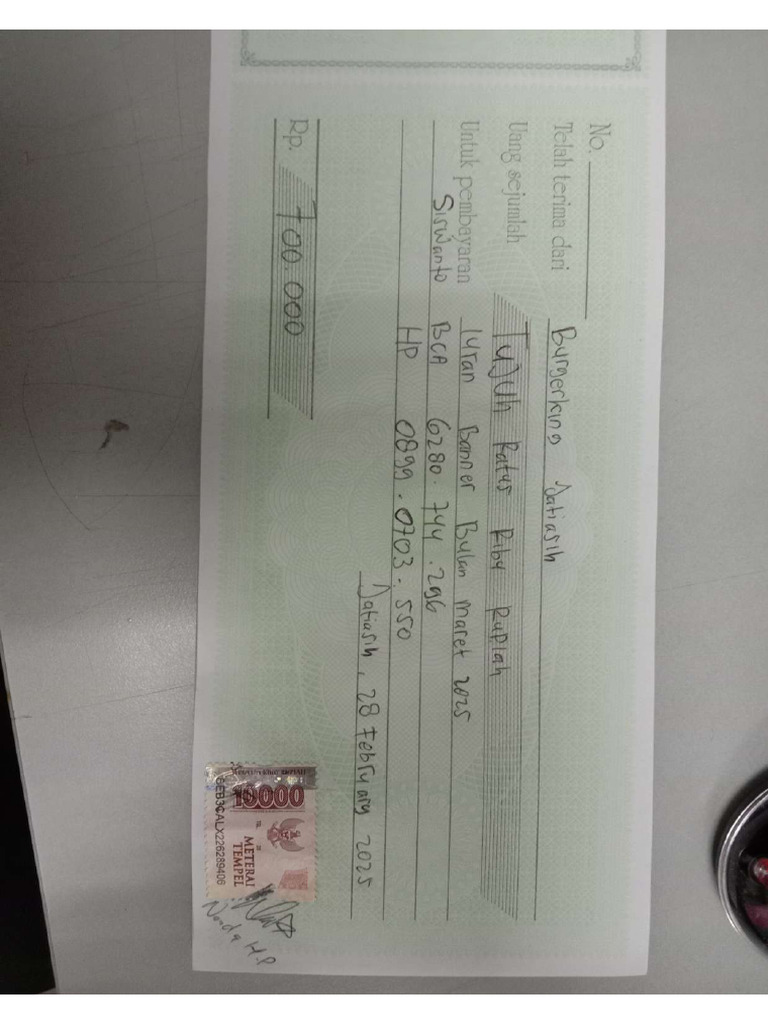 No.
Telah terima dari Burgerking Jatiasih
Uang sejumlah Tujuh Ratus Ribu Rupiah
Untuk pembayaran Iuran Banner Bulan Maret 2025
Siswanto BCA 6280.744.296
HP 0899.0703.550
Jatiasih, 28 February 2025
Rp. 700.000
10000
METERAI
TEMPEL
6EB3CALX226289406